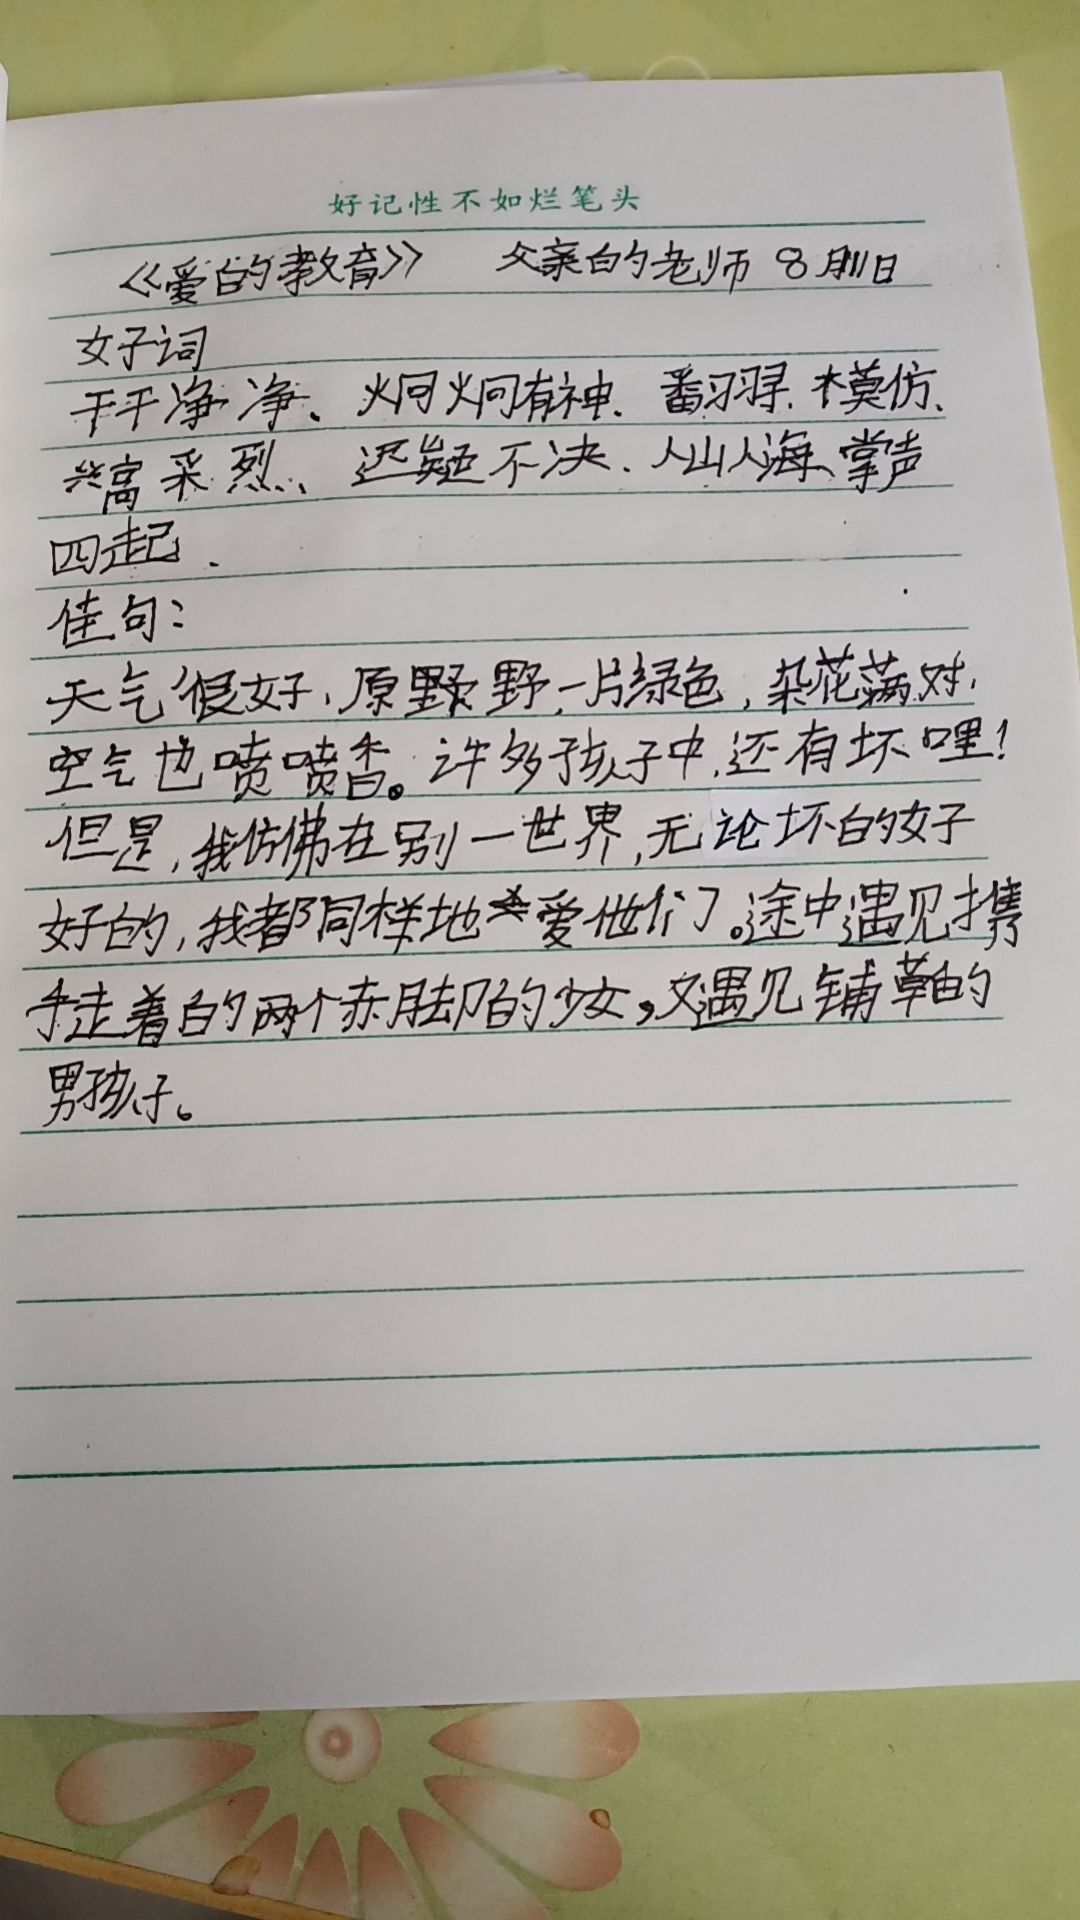 好记性不如烂笔头
《爱的教育》 父亲的老师 8月11日
好词
干干净净、炯炯有神、翻寻、模仿、
兴高采烈、迟疑不决、人山人海、掌声
四起、
佳句：
天气很好，原野野，一片绿色，杂花满对，
空气也喷喷香。许多孩子中，还有坏哩！
但是，我仿佛在别一世界，无论坏的好
好的，我都同样地爱他们。途中遇见携
手走着的两个赤脚的少女，又遇见铺草的
男孩子。